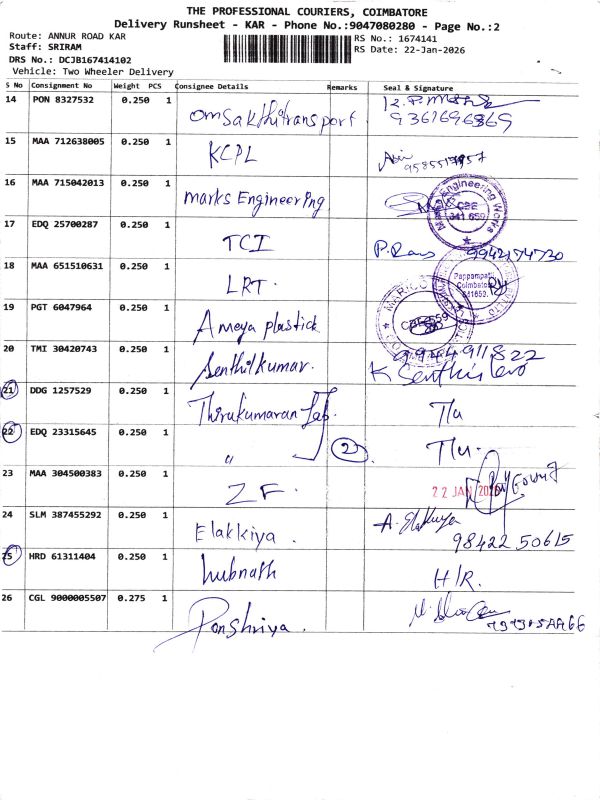 THE PROFESSIONAL COURIERS, COIMBATORE
Delivery Runsheet - KAR - Phone No.:9047080280 - Page No.:2
Route: ANNUR ROAD KAR
RS No.: 1674141
Staff: SRIRAM
RS Date: 22-Jan-2026
DRS No.: DCJB167414102
Vehicle: Two Wheeler Delivery
S No Consignment No Weight PCS Consignee Details Remarks Seal & Signature
14 PON 8327532 0.250 1 omsakthitransport
15 MAA 712638005 0.250 1 KCPL
16 MAA 715042013 0.250 1 marks Engineering
Marks Engineering Works
CBE
641 659
17 EDQ 25700287 0.250 1 TCI 9942174730
18 MAA 651510631 0.250 1 LRT.
Pappampatti
Coimbatore
641659.
19 PGT 6047964 0.250 1 Ameya plastick
20 TMI 30420743 0.250 1 Senthilkumar. 9944911822
21 DDG 1257529 0.250 1 Thirukumaran Lab.
22 EDQ 23315645 0.250 1 " 2
23 MAA 304500383 0.250 1 ZF. 22 JAN 2026
24 SLM 387455292 0.250 1 Elakkiya . A. Elakkiya
98422 50615
25 HRD 61311404 0.250 1 hubnath H/R.
26 CGL 9000005507 0.275 1 Ponshriya .